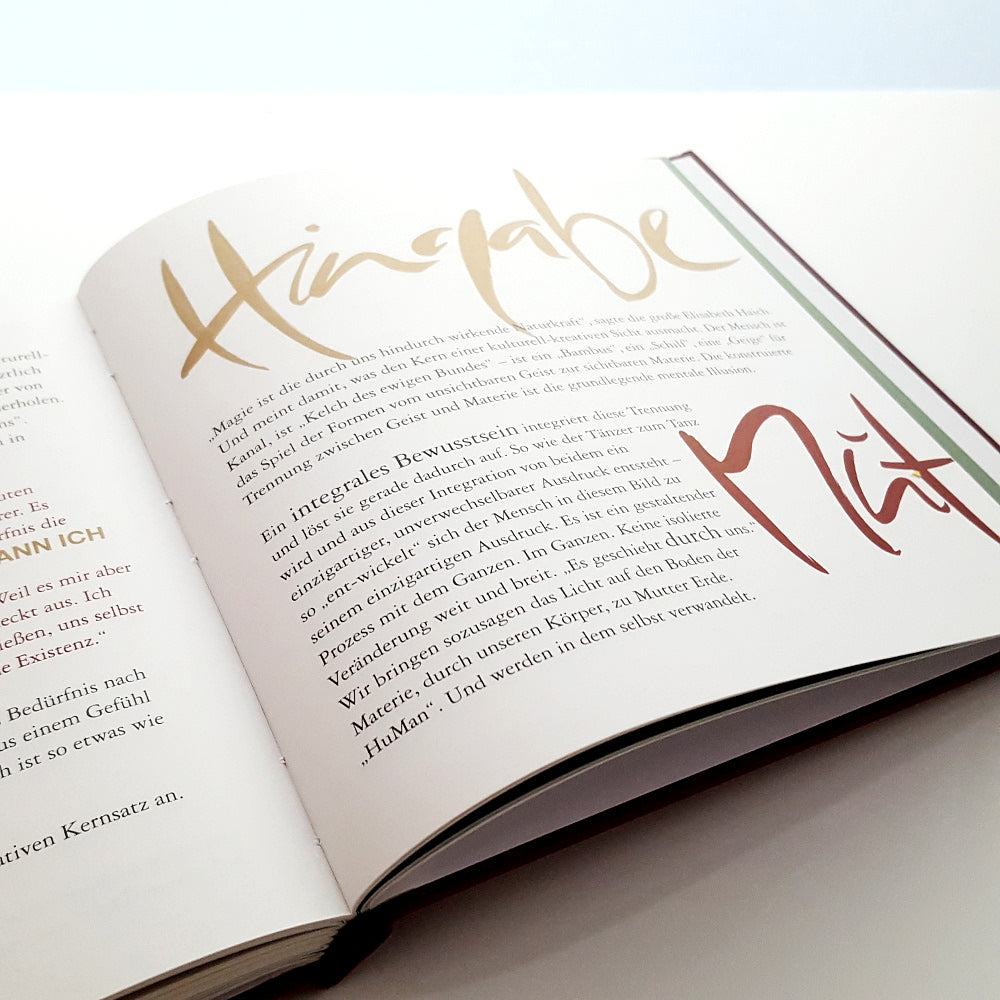 rturell-
tztlich
er von
erholen.
ns“.
l in
uten
rer. Es
rfnis die
ANN ICH
Weil es mir aber
eckt aus. Ich
ießen, uns selbst
e Existenz.“
Bedürfnis nach
us einem Gefühl
h ist so etwas wie
ativen Kernsatz an.
Hingabe
„Magie ist die durch uns hindurch wirkende Naturkraft“, sagte die große Elisabeth Haich.
Und meint damit, was den Kern einer kulturell-kreativen Sicht ausmacht. Der Mensch ist
Kanal, ist „Kelch des ewigen Bundes“ – ist ein „Bambus“, ein „Schilf“, eine „Geige“ für
das Spiel der Formen vom unsichtbaren Geist zur sichtbaren Materie. Die konstruierte
Trennung zwischen Geist und Materie ist die grundlegende mentale Illusion.
Ein integrales Bewusstsein integriert diese Trennung
und löst sie gerade dadurch auf. So wie der Tänzer zum Tanz
wird und aus dieser Integration von beidem ein
einzigartiger, unverwechselbarer Ausdruck entsteht –
so „ent-wickelt“ sich der Mensch in diesem Bild zu
seinem einzigartigen Ausdruck. Es ist ein gestaltender
Prozess mit dem Ganzen. Im Ganzen. Keine isolierte
Veränderung weit und breit. „Es geschieht durch uns.“
Wir bringen sozusagen das Licht auf den Boden der
Materie, durch unseren Körper, zu Mutter Erde.
„HuMan“. Und werden in dem selbst verwandelt.
Mut